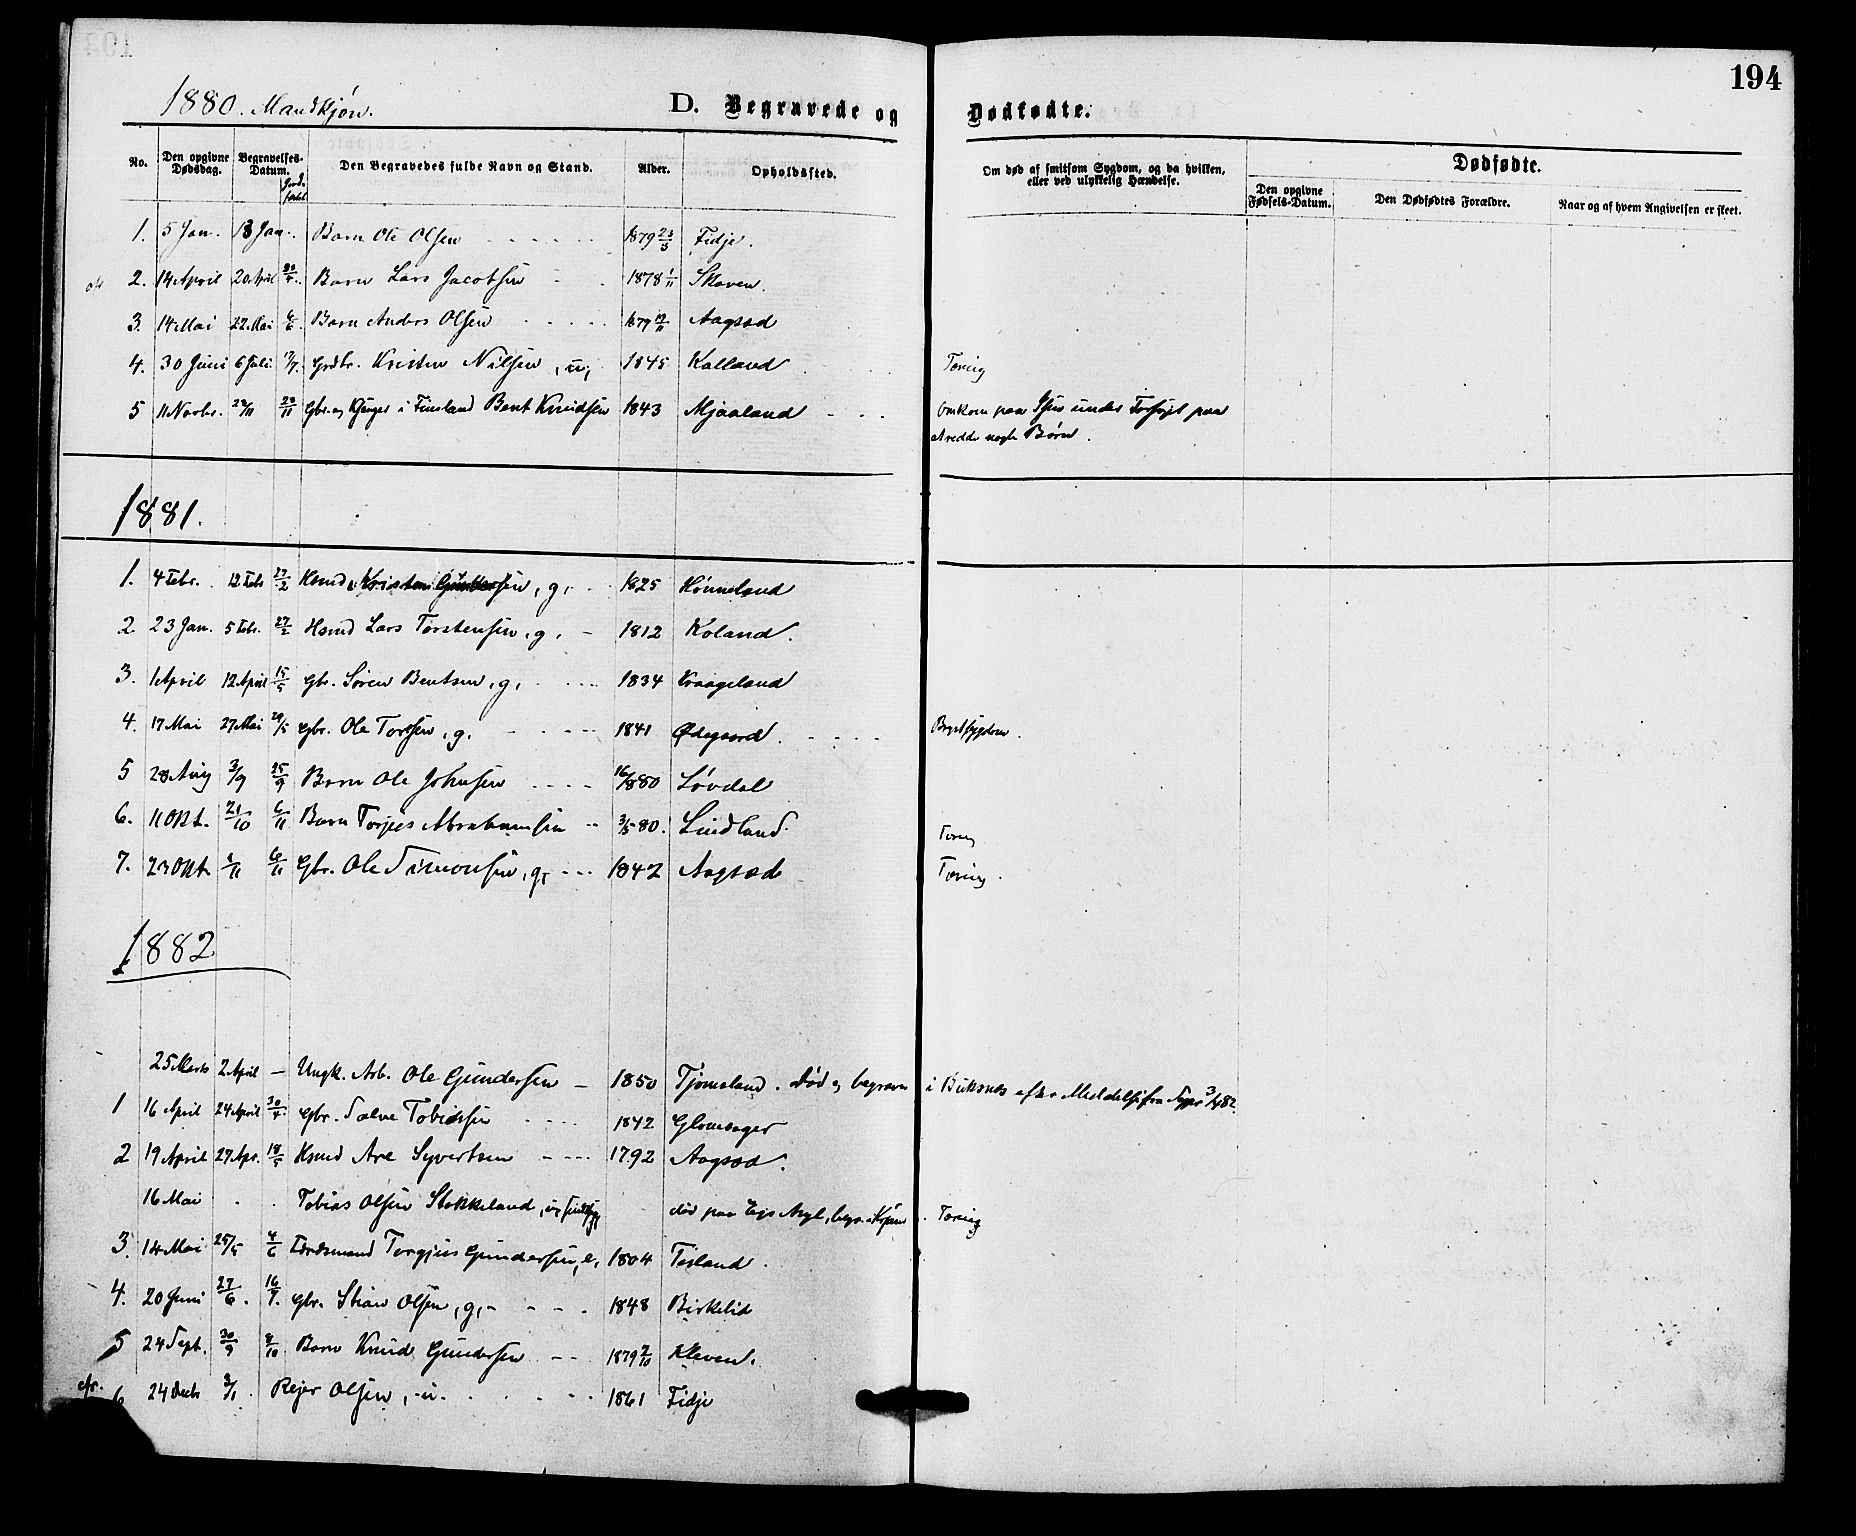 194
1880. Mandkjøn. D. Begravede og Dødfødte.
No. Den opgivne Dødsdag. Begravelses-Datum. Den Begravedes fulde Navn og Stand. Alder. Opholdssted. Om død af smitsom Sygdom, og da hvilken, eller ved ulykkelig Hændelse. Dødfødte. Den opgivne Fødsels-Datum. Den Dødfødtes Forældre. Naar og af hvem Angivelsen er skeet.
1. 5 Jan. 13 Jan. Barn Ole Olsen 1879 23/3 Fidje.
2. 14 April 20 April Barn Lars Jacobsen 1878 1/11 Skoven.
3. 14 Mai 22 Mai 6/6 Barn Anders Olsen 1879 19/11 Aagsed
4. 30 Juni 6 Juli 17/7. Grdbr. Kristen Nilsen, u, 1845 Kalland Tæring
5 11 Novbr. 28/11 Gbr. og Kjøger i Finsland Bent Knudsen 1843 Mjaaland Omkom paa Isen under Forsøgt paa
at redde nogle Børn.
1881.
1. 4 Febr. 12 Febr 27/2 Hsmd. Kristen Gundersen, g, 1825 Hønneland
2. 23 Jan. 5 Febr. 27/2 Hsmd Lars Torstensen, g, 1812 Koland.
3. 1 April 12 April 15/5 Gbr. Søren Bentsen, g, 1834 Kraageland
4. 17 Mai 27 Mai 29/5 Gbr. Ole Torsen, g. 1841 Ødegaard. Brystsygdom.
5 28 Aug 3/9 25/9 Barn Ole Johnsen 1880 Løvdal
6. 11 Okt. 21/10 6/11 Barn Torjus Abrahamsen 3/5 80. Lindland. Tæring
7. 23 Okt. 1/11 6/11 Gbr. Ole Simonsen, g, 1842 Aagsed Tæring.
1882
25 Marts 2 April — Ungk. Arb. Ole Gundersen — 1850 Tjomsland. død og begraven i Buksnes efter Meddelse fra Sgpr 3/4 82.
1 16 April 24 April 30/4. Gbr. Salve Tobiassen 1842 Glomsager
2 19 April 27 Apr. 18/5 Hsmd Are Syvertsen 1792 Aagsed.
16 Mai Tobias Olsen Stokkeland, u, sindssyg død paa Egs Asyl, begr. i Krsand. Tæring
3. 14 Mai 25/5 4/6 Torgjus Gundersen, e, 1804 Tisland.
4. 20 Juni 27/6. 16/7. Gbr. Stian Olsen, g, 1848 Birkelid
5 24 Sept. 30/9 8/10 Barn Knud Gundersen 1879 7/10 Kleven.
6 24 Decb 3/1 Rejer Olsen, u. 1861 Fidje